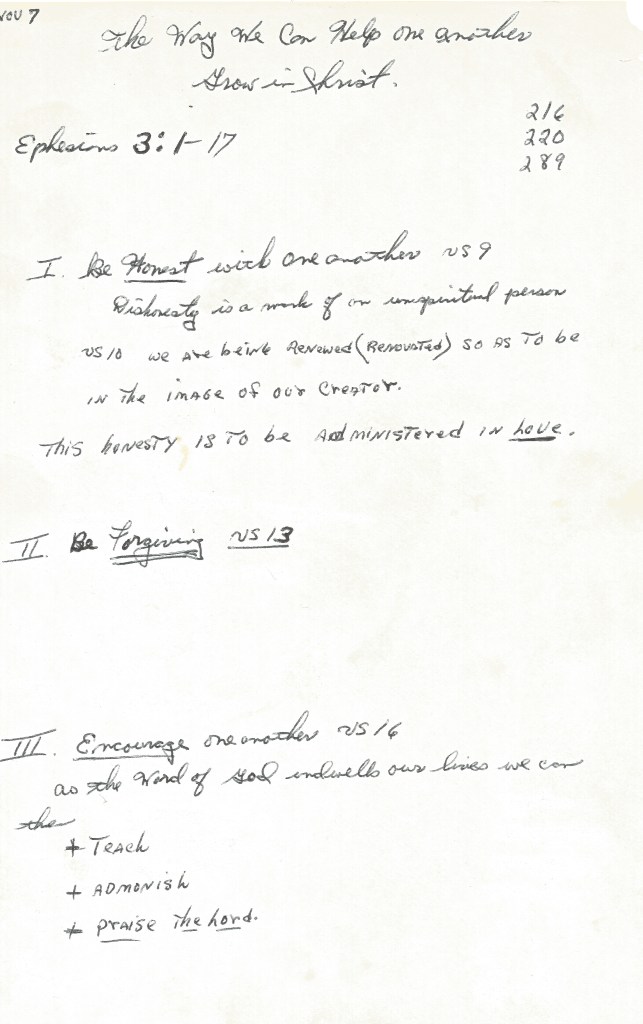 NOV 7
The Way We Can Help one another
Grow in Christ.
216
Ephesians 3:1-17
220
289
I. Be Honest with one another vs 9
Dishonesty is a mark of an unspiritual person
vs 10 we are being Renewed (Renovated) so as to be
in the image of our Creator.
This honesty is to be Administered in Love.
II. Be Forgiving vs 13
III. Encourage one another vs 16
as the Word of God indwells our lives we can
then
+ Teach
+ Admonish
+ Praise the Lord.